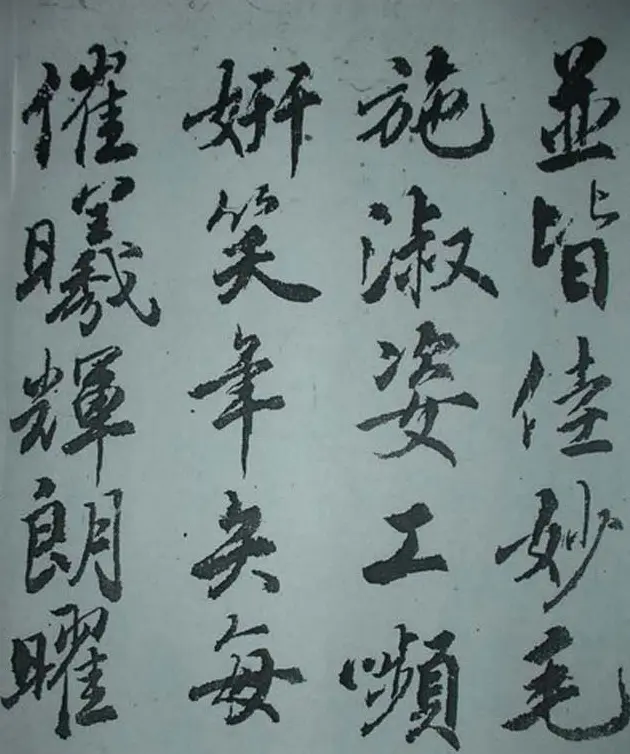 並皆佳妙毛
施淑姿工嚬
妍笑年矢每
催曦輝朗曜